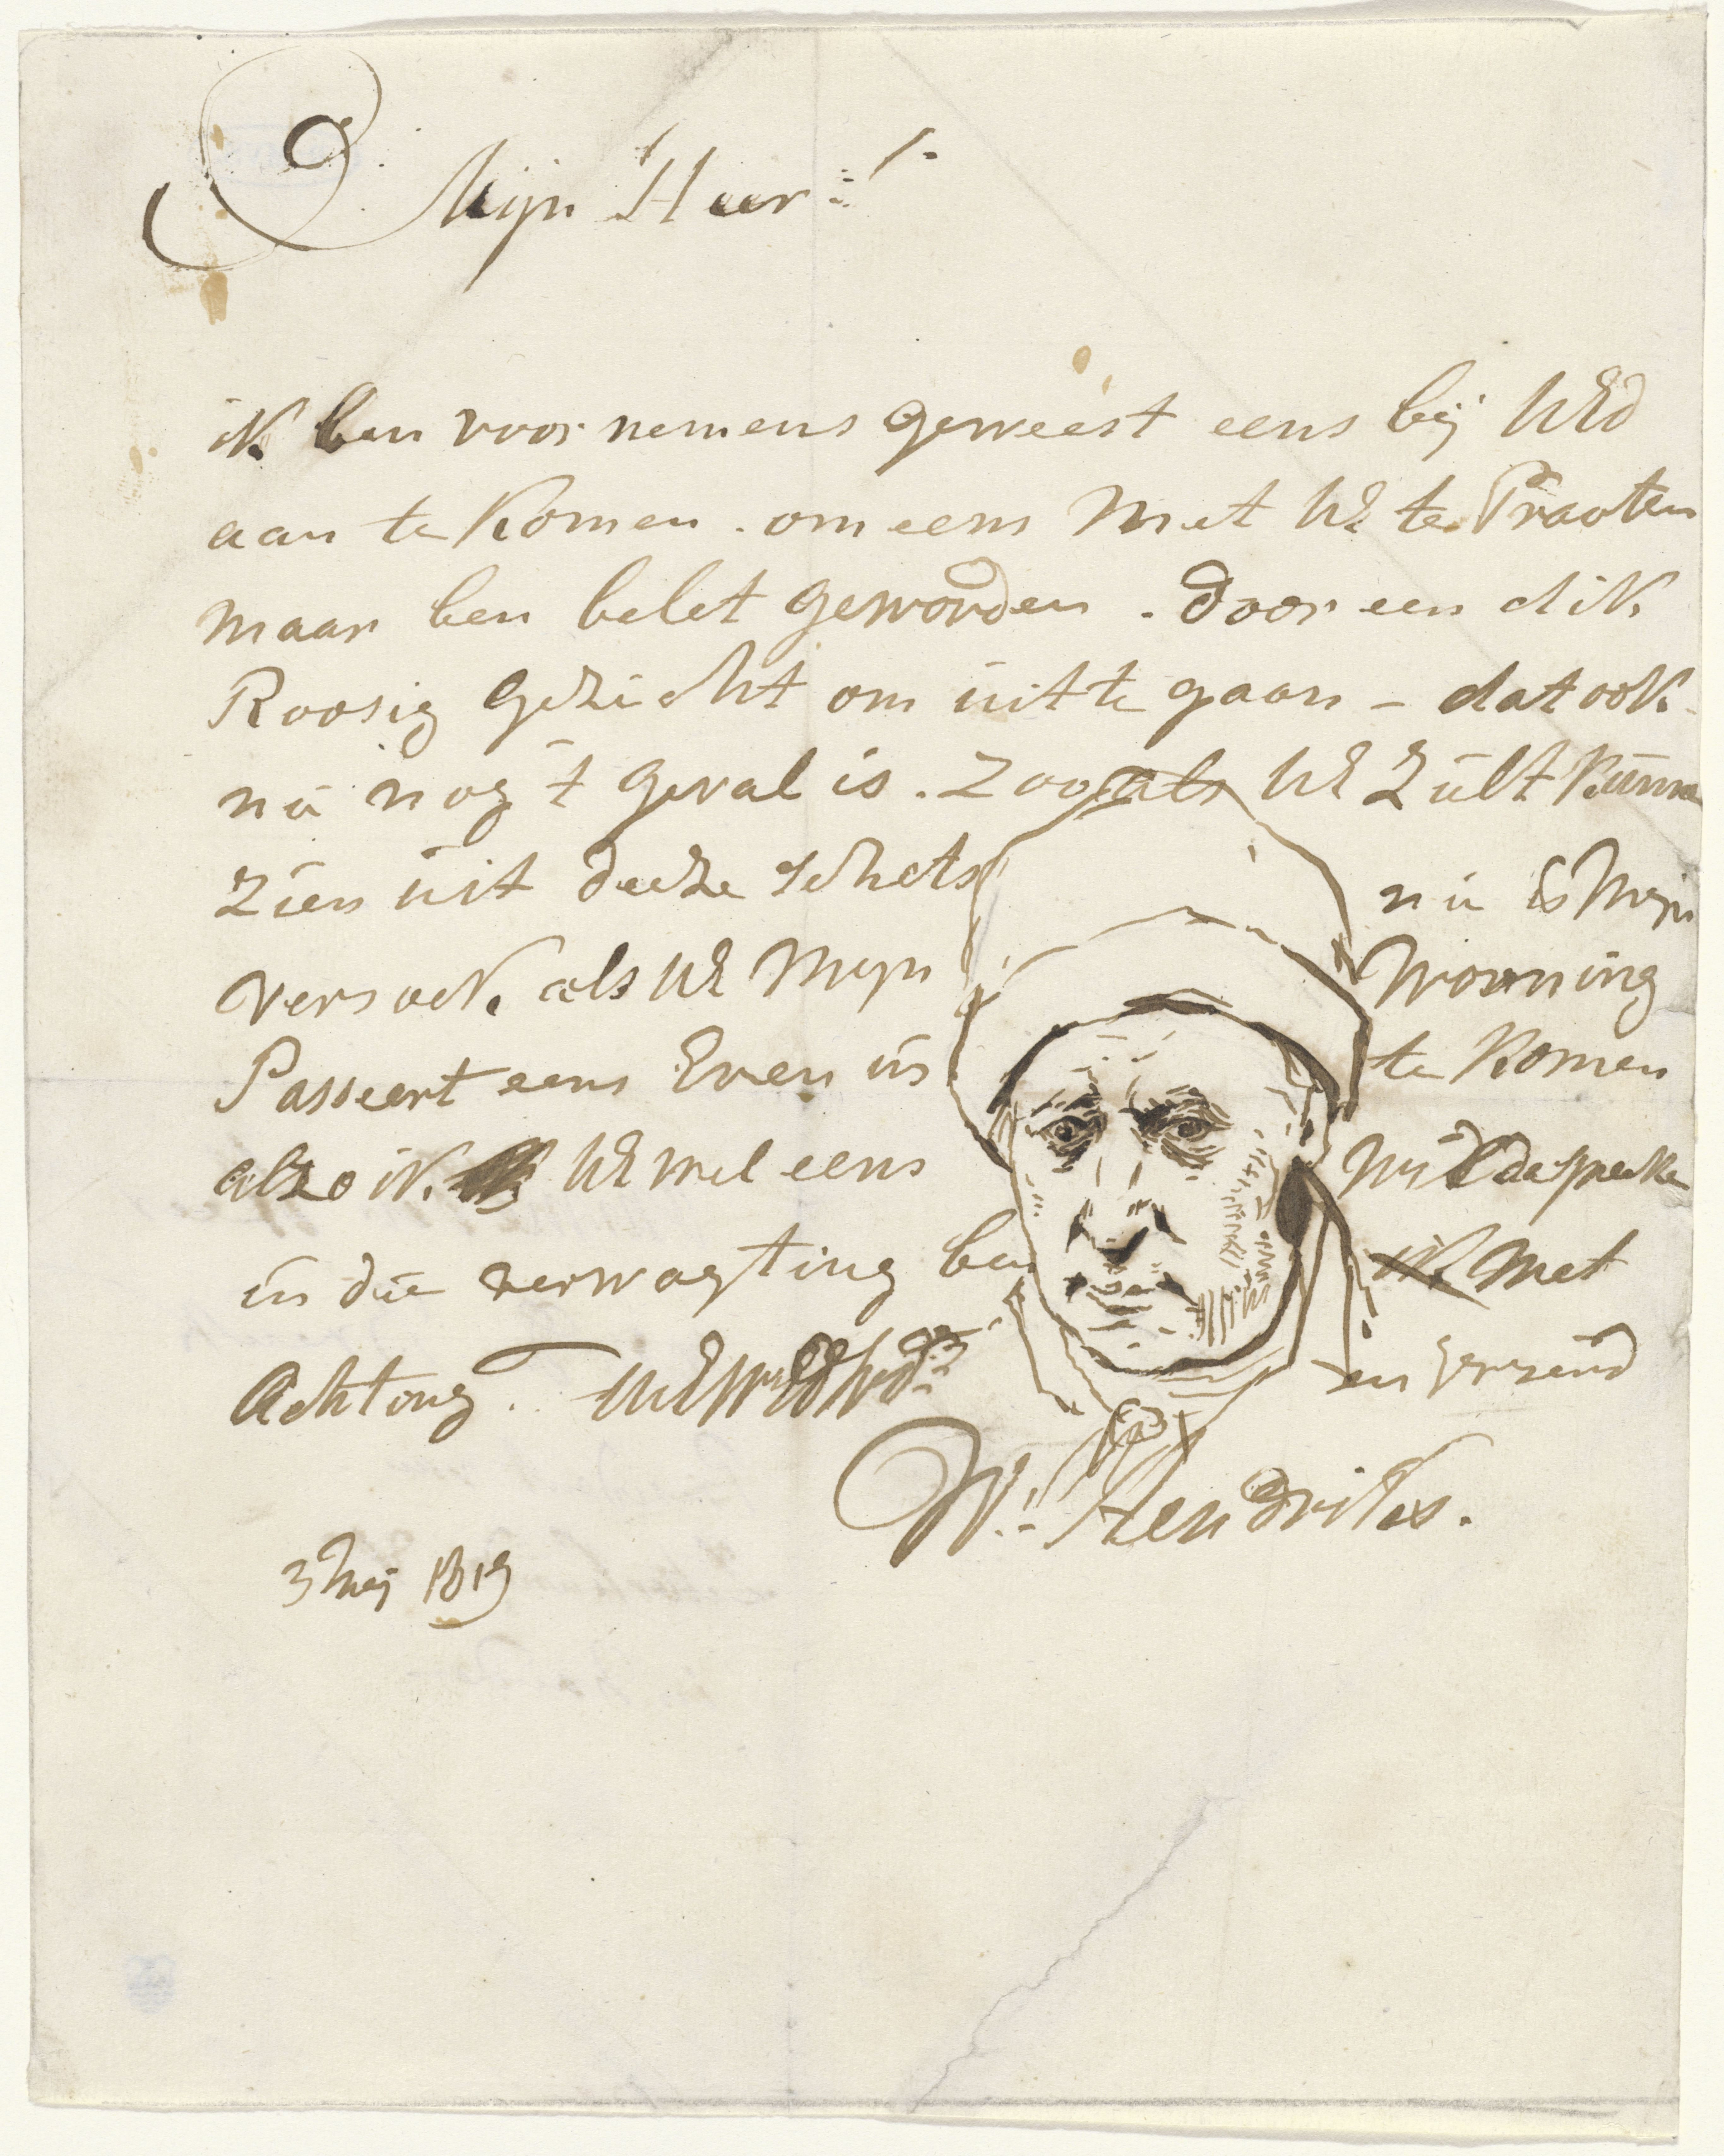 Mijn Heer
ik ben voornemens geweest eens bij UEd
aan te Komen . om eens Met UE te Praaten
maar ben belet geworden . door een dik
Roosig Gezicht om uit te gaan - dat ook
nu nog t Geval is . Zooals UE Zult Kunne
Zien uit deeze schets nu is Mijn
versoek als UE Mijn Wooning
Passeert eens Even in te Komen
alzo ik UE wel eens Wilde spreeke
in die verwagting ben ik Met
Achting .
W: Hendriks .
3 Mei 1819